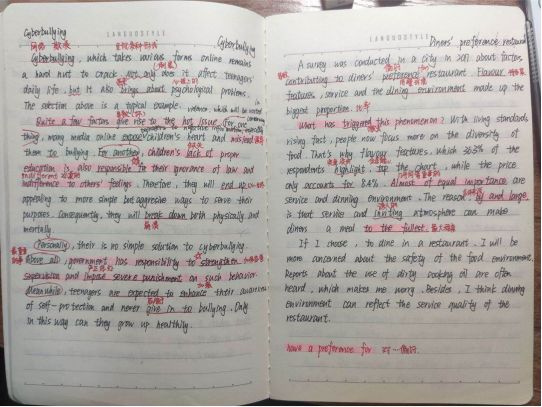 Cyberbullying
LANGUOSTYLE
Cyberbullying
Cyberbullying, which takes various forms online remains
a hard nut to crack. Not only does it affect teenagers'
daily life, but it also brings about psychological problems.
The section above is a topical example.
Quite a few factors give rise to the hot issue. For one
thing, many media online expose children's heart and mislead
them to bullying. For another, children's lack of proper
education is also responsible for their ignorance of law and
indifference to others' feelings. Therefore, they will end up
appealing to more simple but aggressive ways to serve their
purposes. Consequently, they will break down both physically and
mentally.
崩溃
Personally, their is no simple solution to cyberbullying.
Above all, government has responsibility to strengthen
supervision and impose severe punishment on such behavior.
Meanwhile, teenagers are expected to enhance their awareness
of self-protection and never give in to bullying. Only
in this way can they grow up healthily.
LANGUOSTYLE
Diners' preference restaurant
A survey was conducted in a city in 2017 about factors
contributing to diners' preference restaurant. Flavour
features, service and the dining environment made up the
biggest proportion.
What has triggered this phenomenon? With living standards
rising fast, people now focus more on the diversity
of food. That's why flavour features, which 36.8% of the
respondents highlight, top the chart, while the price
only accounts for 8.4%. Almost of equal importance are
service and dinning environment. The reason, by and large,
is that service and inviting atmosphere can make
diners a meal to the fullest.
If I choose, to dine in a restaurant, I will be
more concerned about the safety of the food environment.
Reports about the use of dirty cooking oil are often
heard, which makes me worry. Besides, I think dinning
environment can reflect the service quality of the
restaurant.
have a preference for 对…偏好